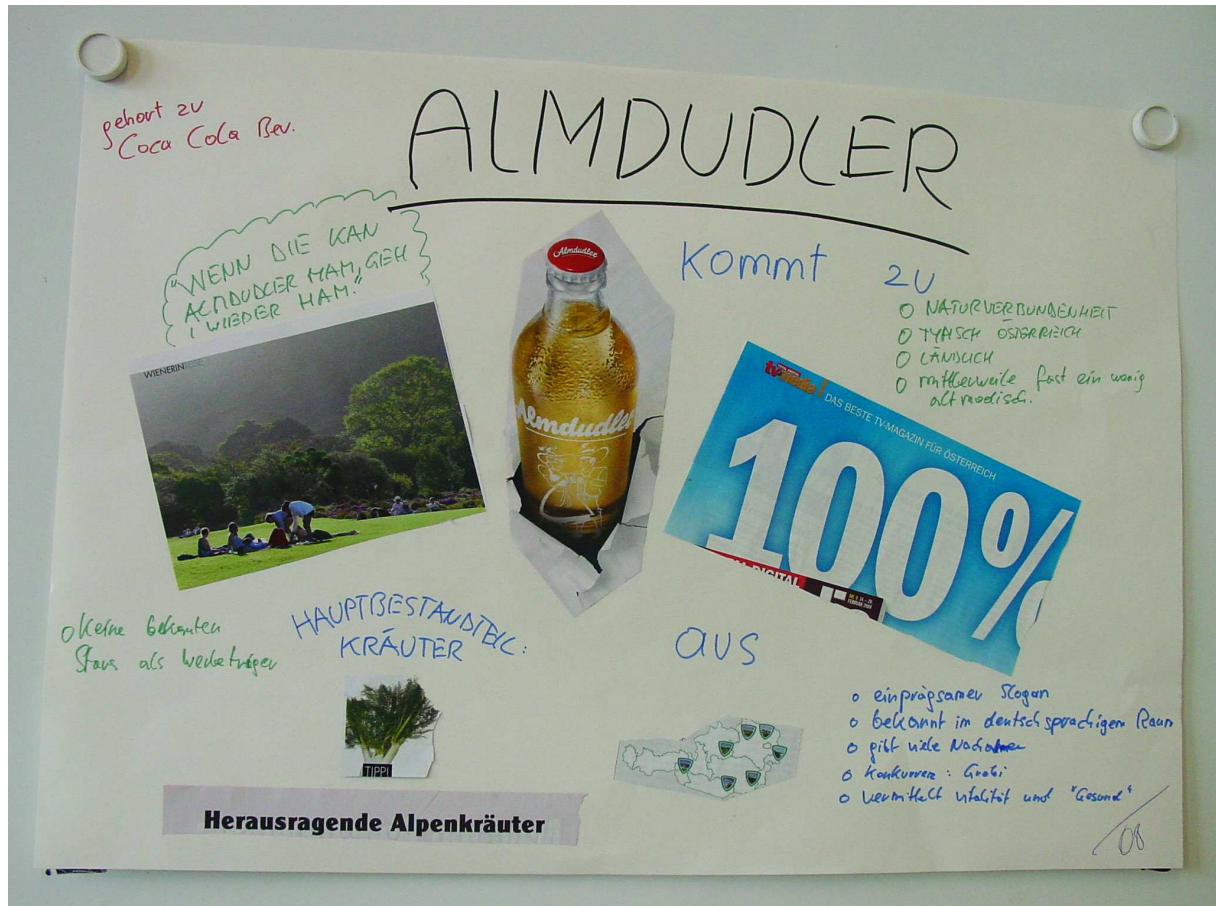 gehört zu
Coca Cola Bev.
ALMDUDLER
"WENN DIE KAN
ALMDUDLER HAM, GEH
I WIEDER HAM."
Almdudler
Almdudler
kommt zu
O NATURVERBUNDENHEIT
O TYPISCH ÖSTERREICH
O LÄNDLICH
O mittlerweile fast ein wenig
altmodisch.
WIENERIN
tv-media
DAS BESTE TV-MAGAZIN FÜR ÖSTERREICH
100%
DIGITAL
FEBRUAR
O Keine bekannten
Stars als Werbeträger
HAUPTBESTANDTEIL:
KRÄUTER
TIPP!
Herausragende Alpenkräuter
aus
o einprägsamer Slogan
o bekannt im deutschsprachigem Raum
o gibt viele Nachahmer
o Konkurrenz: Grobi
o vermittelt vitalität und "Gesund"
/08